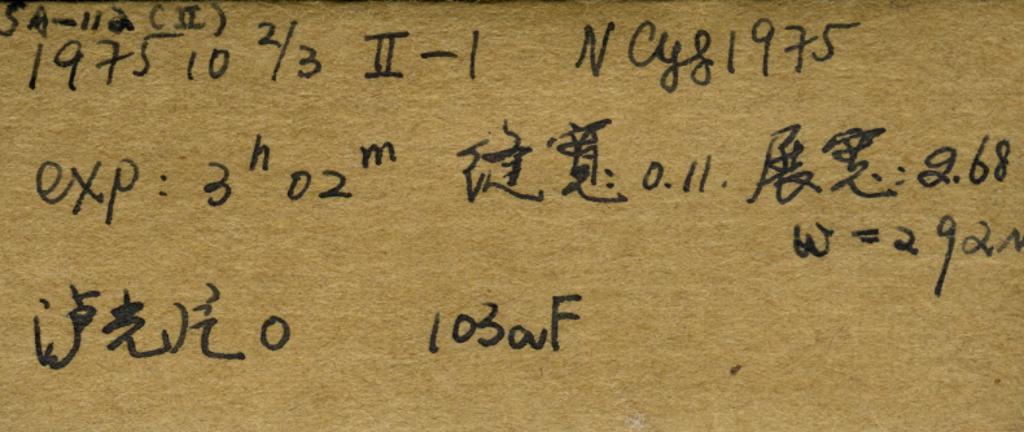 SA-112 (II)
1975 10 2/3 II-1 N Cyg 1975
exp: 3h 02m 缝宽: 0.11. 展宽: 2.68
w = 292
滤光片 0 103aF